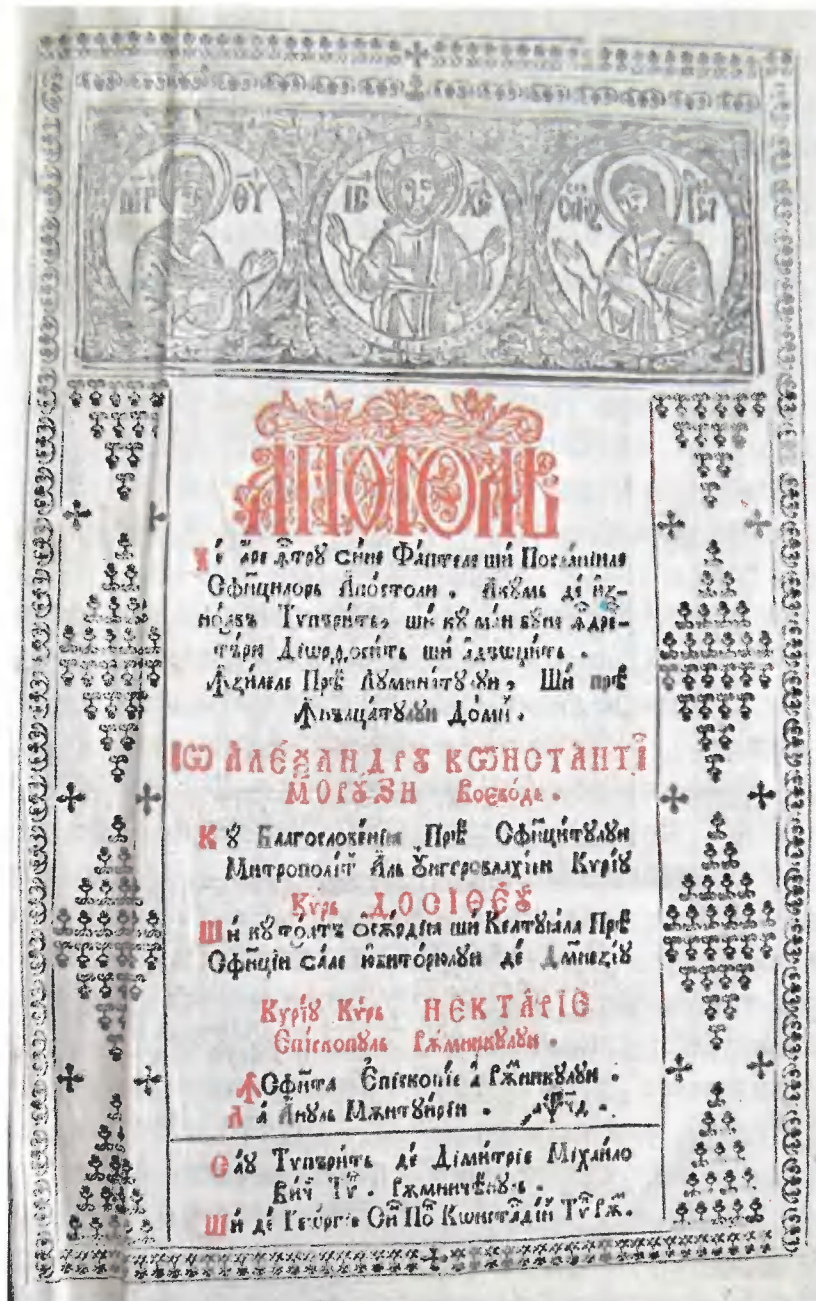 МР ѲУ ІС ХС
АПОСТОЛЪ
Че а́ре ꙟ҆трꙋ сине Фаптеле ши Посланїиле
Сфинцилорь Апостоли . Акꙋмь де из-
ноавъ Типъритъ, ши кꙋ май бꙋне ꙟдре-
търи Дїѡрдосить ши адъѡцить .
Ꙟзилеле Прѣ Лꙋминатꙋлꙋи, Ши прѣ
Ꙟнълцатꙋлꙋи Домн .
ІѠ АЛЕѮАНДРꙊ КѠНСТАНТІ
МОРꙊЗИ Воевода .
Кꙋ Благословенїѧ Прѣ Сфинцитꙋлꙋи
Митрополит Аль Оунгеровлахїи Кирїꙋ
Кѵрь ДОСІѲЕꙊ
Ши кꙋ тоатъ осѫрдїѧ ши Келтꙋїала Прѣ
Сфинцїи сале юбиторюлꙋи де Дмнезеꙋ
Кирїꙋ Кѵрь НЕКТАРІЕ
Епїскопꙋль Рѫмникꙋлꙋи .
Ꙟ Сфѫнта Епїскопїе а Рѫмникꙋлꙋи .
Ла Анꙋль Мѫнтꙋирїи . ҂аѱчд .
Саꙋ Типърить де Димитрїе Міхаило
вич Тѵ . Рѫмничѣнꙋль .
Ши де Геѡргїе Сн По Кѡнстадин Тѵ Рѫм .